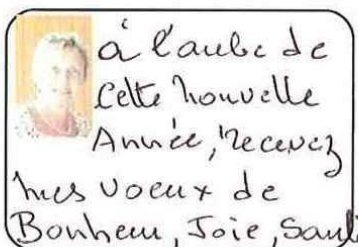 à l'aube de
cette nouvelle
Année, recevez
mes voeux de
Bonheur, Joie, Santé